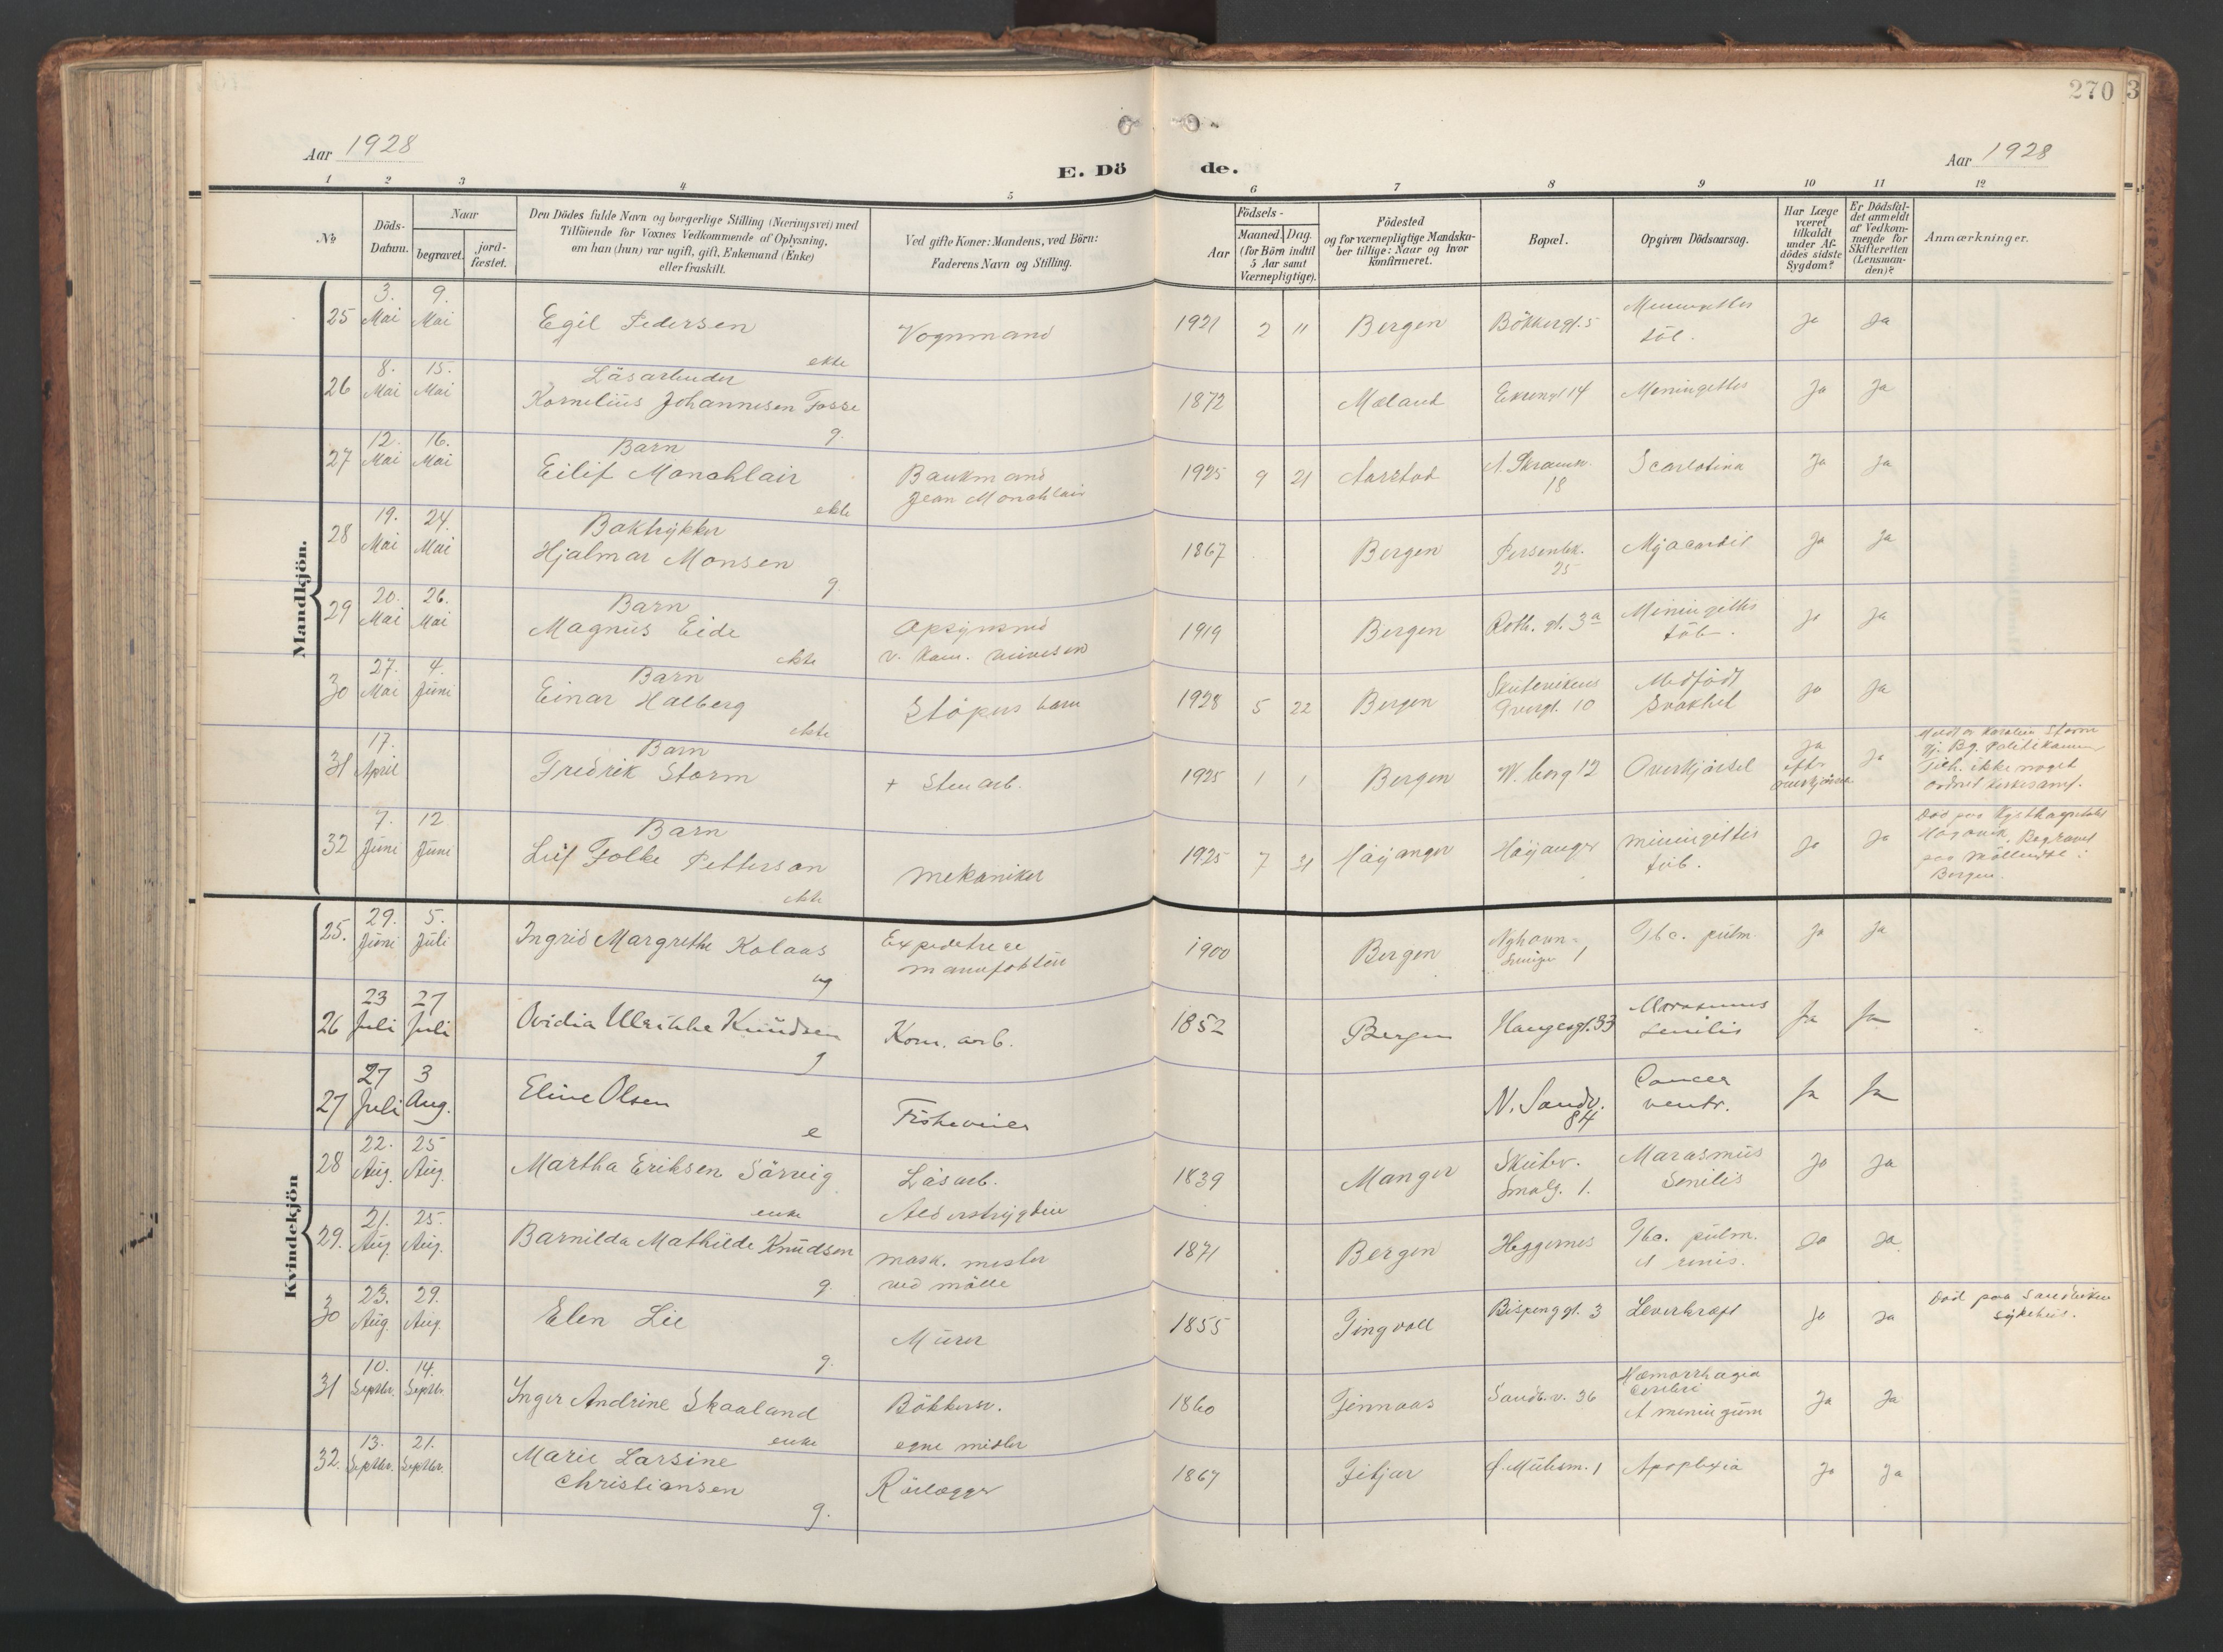 270
3
Aar 1928
Aar 1928
E. Dö de.
1 2 3 4 5 6 7 8 9 10 11 12
No
Döds-
Datum.
Naar
begravet.
jord-
fæstet.
Den Dödes fulde Navn og borgerlige Stilling (Næringsvei) med
Tilföiende for Voxnes Vedkommende af Oplysning,
om han (hun) var ugift, gift, Enkemand (Enke)
eller fraskilt.
Ved gifte Koner: Mandens, ved Börn:
Faderens Navn og Stilling.
Födsels-
Aar
Maaned. Dag.
(for Börn indtil
5 Aar samt
Værnepligtige).
Födested
og for værnepligtige Mandska-
ber tillige: Naar og hvor
konfirmeret.
Bopæl.
Opgiven Dödsaarsag.
Har Læge
været
tilkaldt
under Af-
dödes sidste
Sygdom?
Er Dödsfal-
det anmeldt
af Vedkom-
mende for
Skifteretten
(Lensman-
den)?
Anmærkninger.
Mandkjön.
25 3. Mai 9. Mai Egil Pedersen ekte Vognmand 1921 2 11 Bergen Bökkergt. 5 töb. Ja Ja
26 8. Mai 15. Mai Kornelius Johannesen Fosse g. 1872 Mæland 14 Meningittis Ja Ja
27 12. Mai 16. Mai Barn
Eilif Monahlair ekte Jean Monahlair 1925 9 21 Aarstad 18 Scarlatina Ja Ja
28 19. Mai 24. Mai Boktrykker
Hjalmar Monsen g. 1867 Bergen Persenbk. 25 Ja Ja
29 20. Mai 26. Mai Barn
Magnus Eide ekte 1919 Bergen Roth. gt. 3a Miningittis töb. Ja Ja
30 27. Mai 4. Juni Barn
Einar Halberg ekte 1928 5 22 Bergen 10 Medfödt Svakhet Ja Ja
31 17. April Barn
Fredrik Storm + Sten arb. 1925 1 1 Bergen W. berg 12 Overkjörsel Ja efter overkjörselen Ja
Storm
ikke noget
32 7. Juni 12 Juni Barn
Leif Folke Petterson ekte Mekaniker 1925 7 31 Höyanger Höyanger miningittis tub. Ja Ja
Död paa
Begravet
paa Möllendal
Bergen.
Kvindekjön
25. 29. Juni 5. Juli Ingrid Margrethe Kolaas ug Expeditrice
manufaktur 1900 Bergen 1 Tbc. pulm. Ja Ja
26 23 Juli 27 Juli Ovidia Ulrikke Knudsen g Kom. arb. 1852 Bergen Haugesgt. 33 Marasmus
senilis Ja Ja
27 27 Juli 3 Aug. Eline Olsen e N. Sandv.
84 Cancer
ventr. Ja Ja
28 22. Aug. 25 Aug. Martha Eriksen Sörvig enke Läsarb. 1839 Manger Skutev.
Smalg. 1. Marasmus
Senilis Ja Ja
29. 21. Aug. 25. Aug. Barnilda Mathilde Knudsen g. mask. mester
ved mölle 1871 Bergen Heggernes Tbc. pulm.
et renis. Ja Ja
30 23. Aug. 29. Aug. Elen Lie g. Murer 1855 Tingvoll Bispenggt. 3 Leverkræft Ja Ja Död paa Sandviken
sykehus.
31 10. Septbr. 14. Septbr. Inger Andrine Skaaland enke Bökkersv. 1860 Finnaas Sandv. v. 36 Hæmorrhagia
cerebri
et meningium Ja Ja
32. 13. Septbr. 21. Septbr. Marie Larsine
Christiansen g. Rörlægger 1867 Fitjar 1 Apoplexia Ja Ja